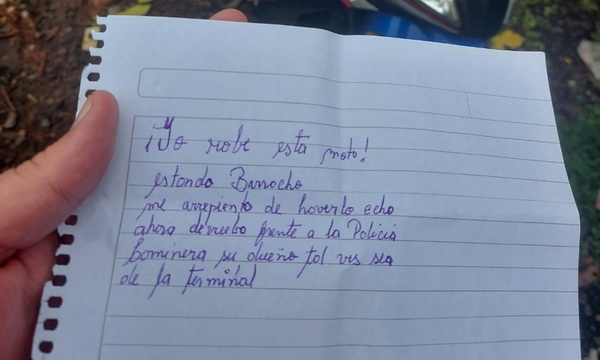 ¡Yo robe esta moto!
estando Barrocho
me arrepiento de hoverlo echo
ahora devuelvo frente a la Policia
Caminera su dueño tal ves sea
de la terminal